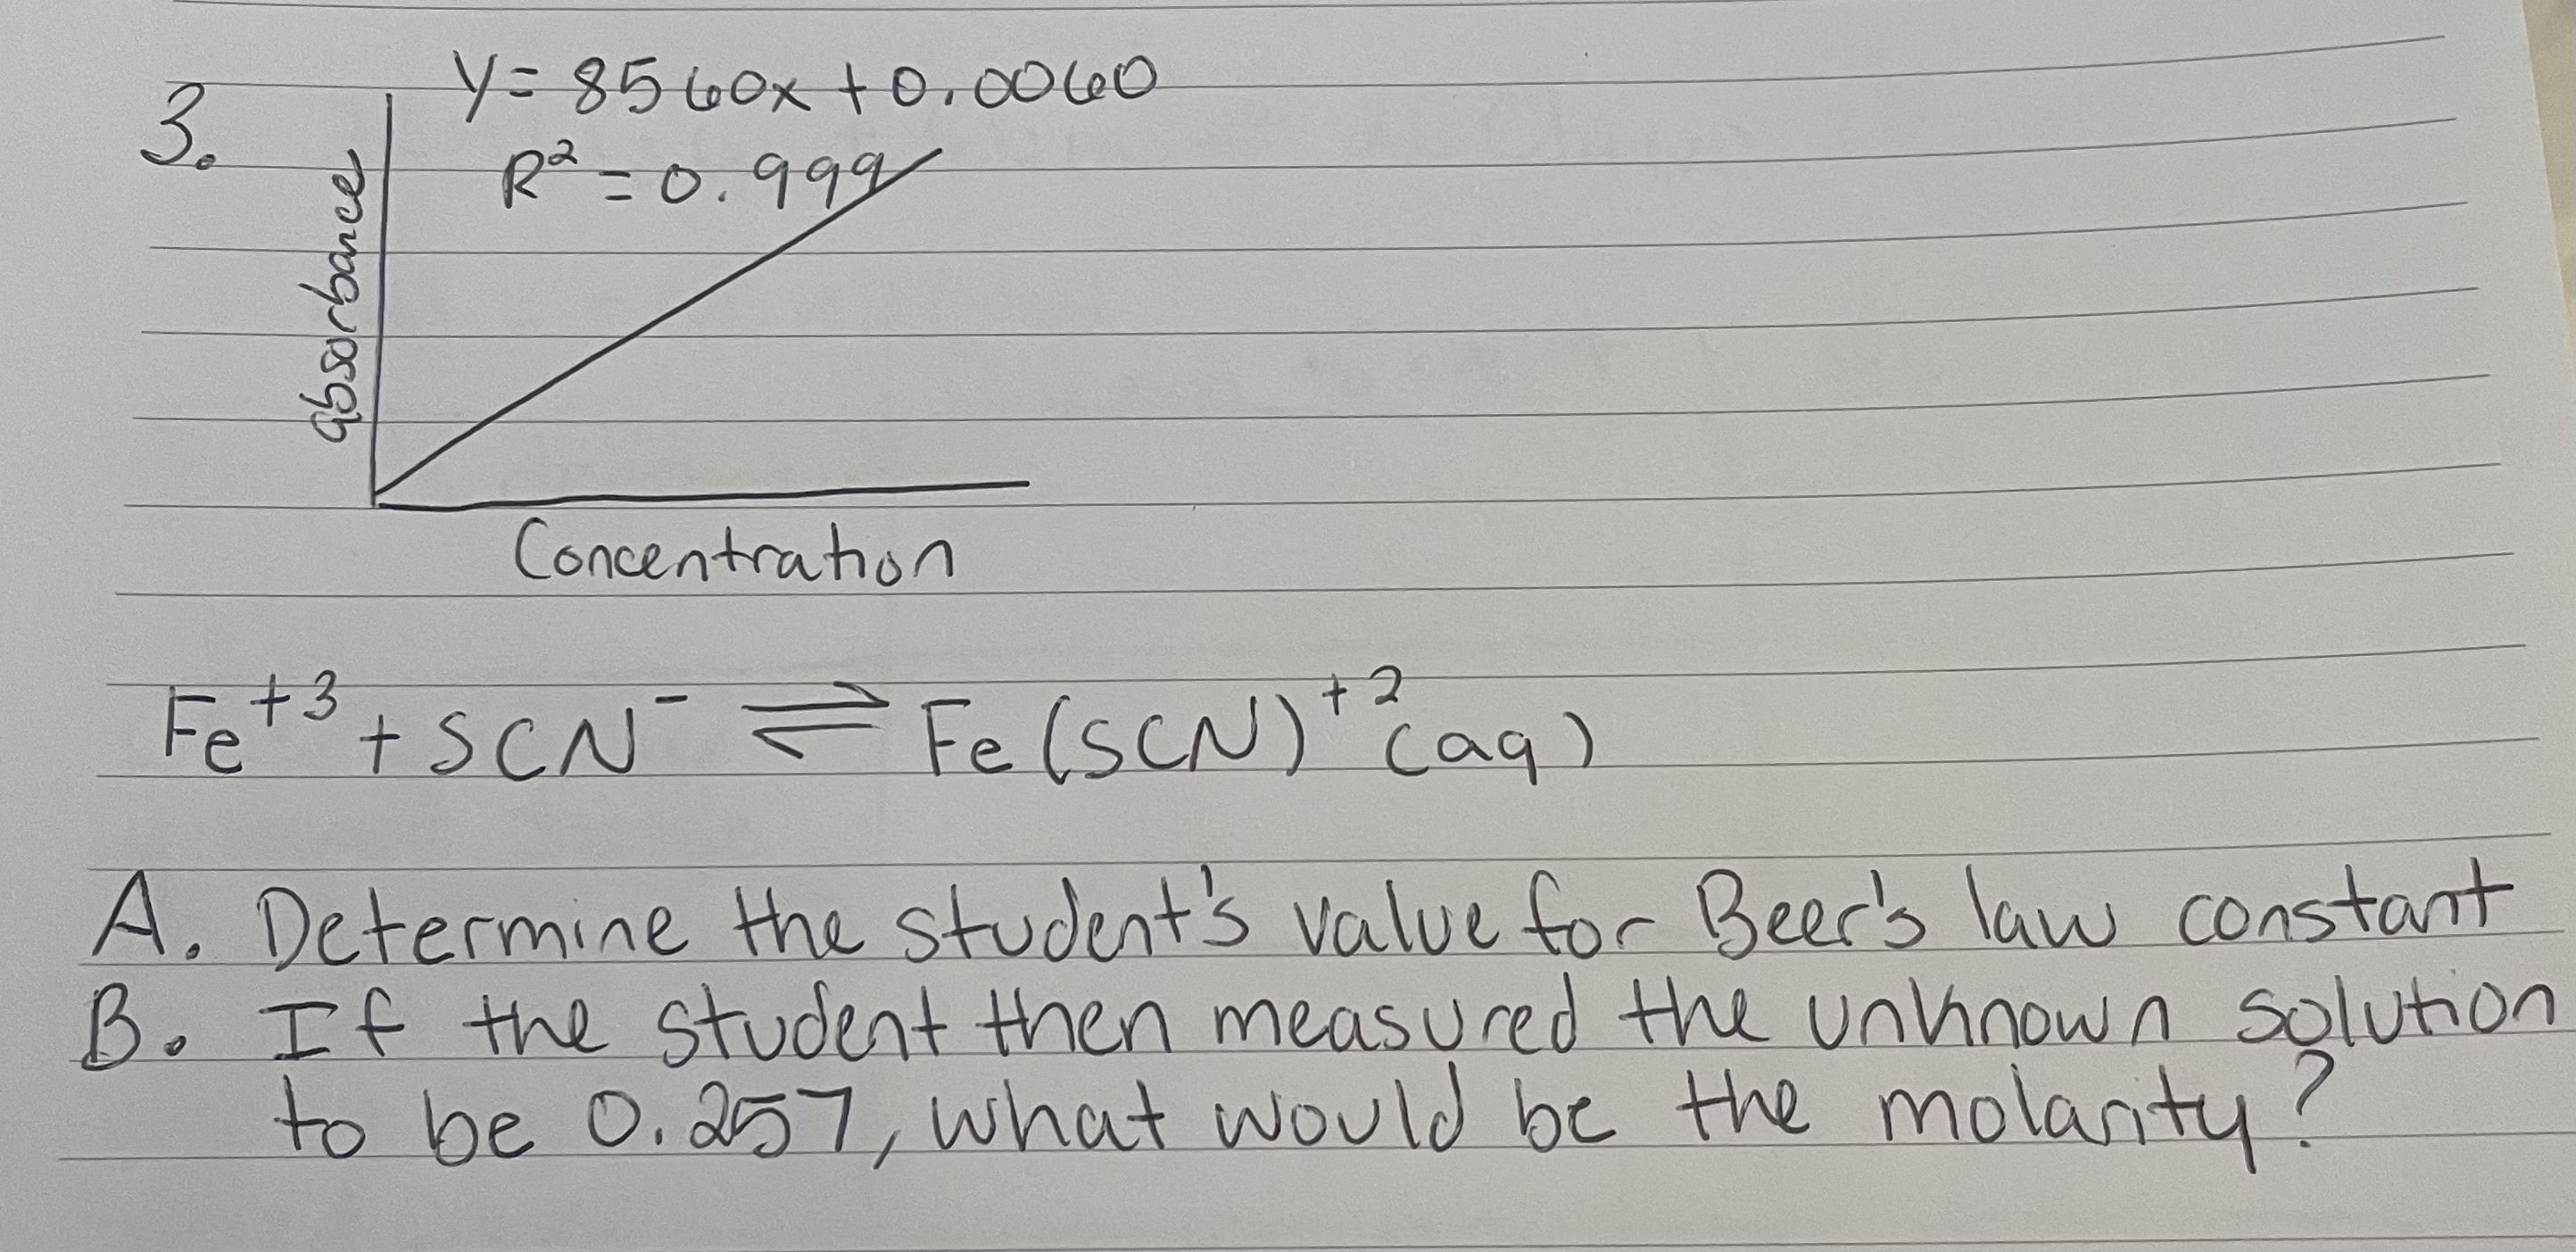 3.
y = 8560x + 0.0060
R² = 0.999
absorbance
Concentration
Fe⁺³ + SCN⁻ ⇌ Fe(SCN)⁺² (aq)
A. Determine the student's value for Beer's law constant
B. If the student then measured the unknown solution
to be 0.257, what would be the molarity?